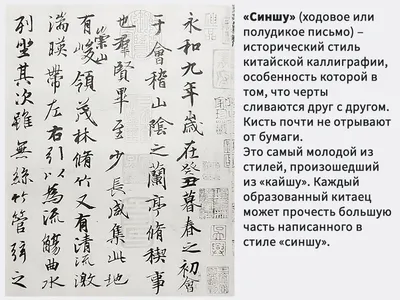 永和九年歲在癸丑暮春之初會
于會稽山陰之蘭亭脩稧事
也羣賢畢至少長咸集此地
有崇山峻領茂林脩竹又有清流激
湍暎帶左右引以為流觴曲水
列坐其次雖無絲竹管弦之
«Синшу» (ходовое или
полудикое письмо) –
исторический стиль
китайской каллиграфии,
особенность которой в
том, что черты
сливаются друг с другом.
Кисть почти не отрывают
от бумаги.
Это самый молодой из
стилей, произошедший
из «кайшу». Каждый
образованный китаец
может прочесть большую
часть написанного в
стиле «синшу».